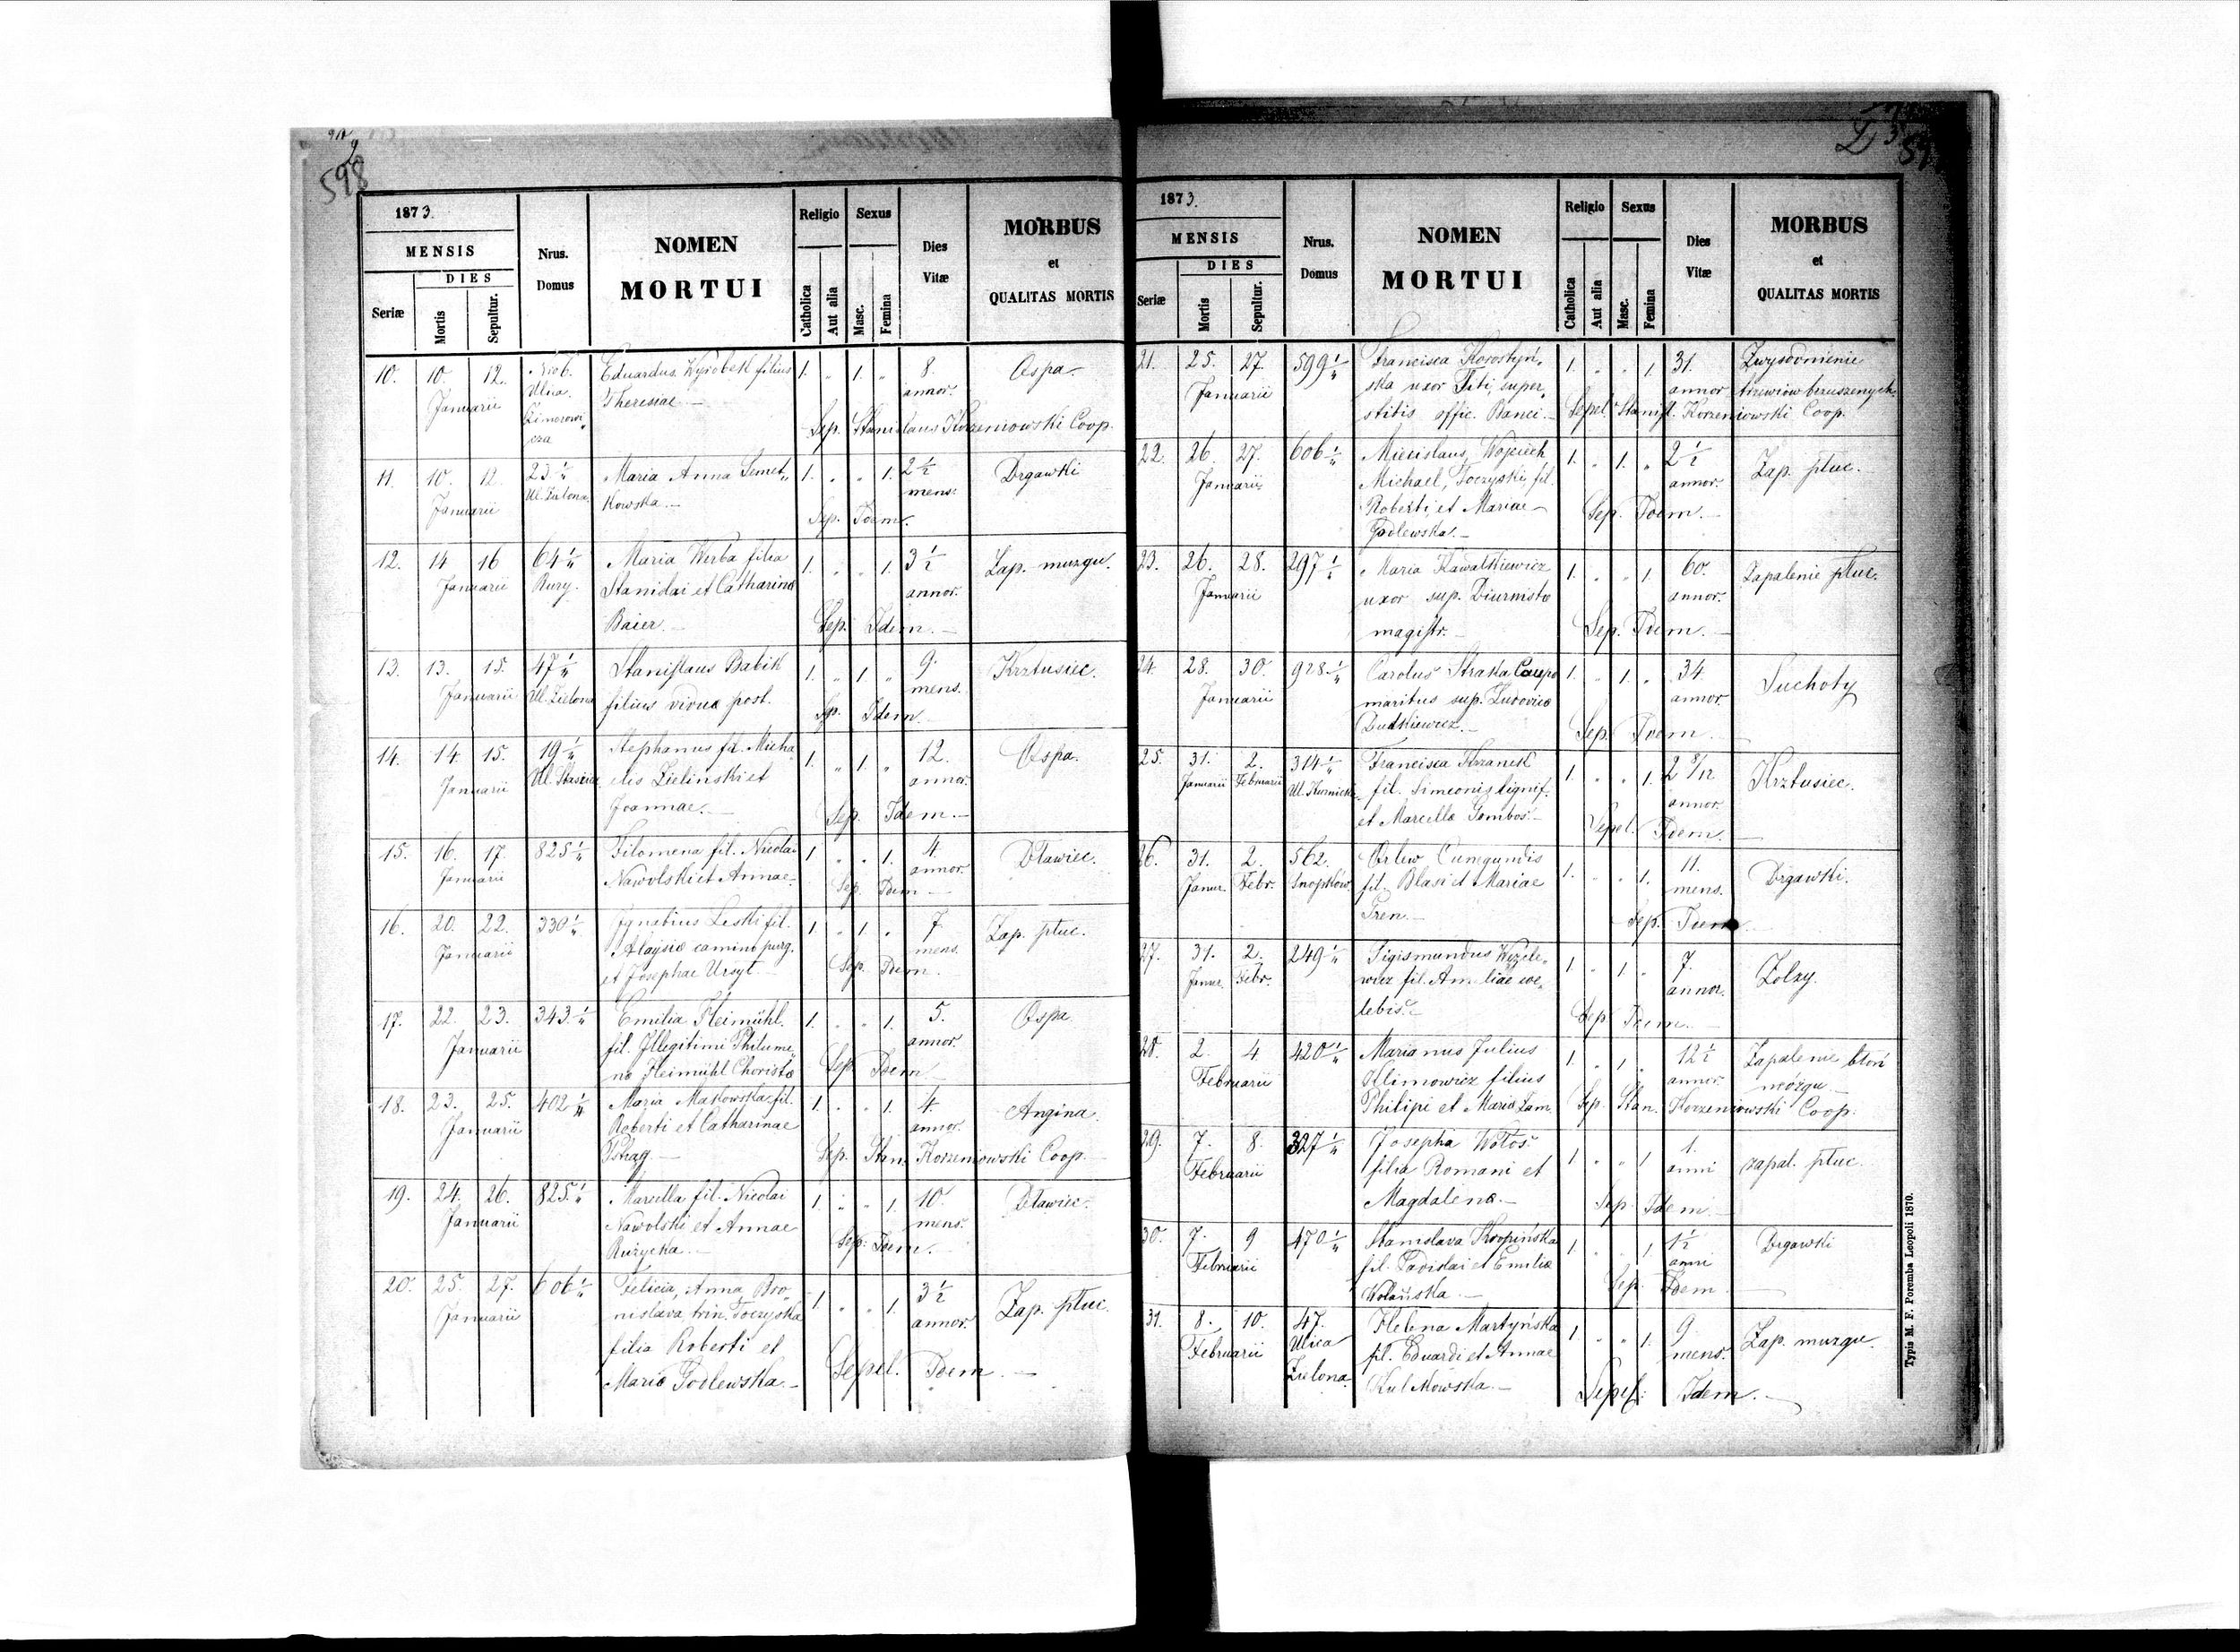 598
1873.
MENSIS
DIES
Seriæ
Mortis
Sepultur.
Nrus.
Domus
NOMEN
MORTUI
Religio
Catholica
Aut alia
Sexus
Masc.
Femina
Dies
Vitæ
MORBUS
et
QUALITAS MORTIS
10. 10. 12. Eduardus Wyrobek filius 1. „ 1. „ 8. Ospa.
Januarii Ulica Theresiae. annor.
Sep. Stanislaus Korzeniowski Coop.
11. 10. 12. 23 1/4 Maria Anna Semet„ 1. „ „ 1. 2 1/2 Drgawki
Januarii Ul. Zielona kowska. mens.
Sep. Idem.
12. 14 16 64 1/4 Maria Werba filia 1. „ „ 1. 3 1/2 Zap. muzgu.
Januarii Stanislai et Catharina annor.
Baier. Sep. Idem.
13. 13. 15. 47 1/4 Stanislaus Babik 1. „ 1 „ 9. Krztusiec.
Januarii Ul. Zielona filius post. mens.
Sep. Idem.
14. 14. 15. 19 1/4 Stephanus fil. Micha 1. „ 1. „ 12. Ospa.
Januarii elis Zielinski et annor.
Joannae. Sep. Idem.
15. 16. 17. 825 1/4 Filomena fil. Nicolai 1 „ „ 1. 4. Dławiec.
Januarii Nawolski et Annae. annor.
Sep. Idem
16. 20. 22. 330 1/4 Ignatius Leski fil. 1. „ 1. „ 7. Zap. płuc.
Januarii camino purg. mens.
et Josephae Sep. Idem.
17. 22. 23. 343. 1/4 Emilia Heimühl. 1. „ „ 1. 5. Ospa
Januarii fil. Illegitimi Philume„ annor.
na Heimühl Choristo Sep. Idem
18. 23. 25. 402 1/4 Maria Makowska fil. 1. „ „ 1. 4. Angina.
Januarii Roberti et Catharinae annor.
Sep. Stan. Korzeniowski Coop.
19. 24. 26. 825. 1/4 Marcella fil. Nicolai 1. „ „ 1. 10. Dławiec.
Januarii Nawolski et Annae mens.
Rużycka. Sep. Idem.
20. 25. 27. 606 1/4 Felicia, Anna, Bro„ 1. „ „ 1. 3 1/2 Zap. płuc.
Januarii nislava trin. Toczyska annor.
filia Roberti et
Maria Godlewska. Sepel. Idem.
1873.
MENSIS
DIES
Seriæ
Mortis
Sepultur.
Nrus.
Domus
NOMEN
MORTUI
Religio
Catholica
Aut alia
Sexus
Masc.
Femina
Dies
Vitæ
MORBUS
et
QUALITAS MORTIS
21. 25. 27. 599 1/4 Francisca 1. „ „ 1. 31.
Januarii ska uxor Titi, super„ annor
stitis offic. Banci. Sepel. Stanisl. Korzeniowski Coop.
22. 26. 27. 606 1/4 Miecislaus, Wojciech 1. „ 1. „ 2 1/2 Zap. płuc.
Januarii Michael, Toczyski, fil. annor.
Roberti, et Mariae Sep. Idem.
Godlewska.
23. 26. 28. 297 1/4 Maria Kawalkiewicz 1. „ „ 1. 60. Zapalenie płuc.
Januarii uxor sup. Diurnisto annor.
magistr. Sep. Idem.
24. 28. 30. 928 1/4 Carolus Straka Caupo 1. „ 1. „ 34. Suchoty
Januarii maritus sup. Ludovica annor.
Dudkiewicz. Sep. Idem.
25. 31. 2. 314 1/4 Francisca 1. „ „ 1. 2 8/12 Krztusiec.
Januarii Februarii fil. Simeonis lignif. annor.
et Marcella Gombos. Sepel. Idem.
26. 31. 2. 562. Orlew Cunegundis 1. „ „ 1. 11. Drgawki.
Januar. Febr. Snopków. fil. Blasi et Mariae mens.
Gren. Sep. Idem
27. 31. 2. 249 1/4 Sigismundus 1 „ 1 „ 7. Zolzy.
Januar. Febr. wicz fil. Amaliae coe„ annor.
lebis. Sep. Idem.
28. 2. 4 420 1/4 Marianus Julius 1. „ 1. „ 12 1/2 Zapalenie błon
Februarii Klimowicz filius annor. mózgu
Philipi et Maria Lam. Sep. Stan. Korzeniowski Coop.
29. 7. 8. 327 1/4 Josepha Wołos 1. „ „ 1 1. zapal. płuc.
Februarii filia Romani et anni
Magdalena. Sep. Idem.
30. 7. 9 470 1/4 Stanislava Kropińska 1. „ „ 1. 1 1/2 Drgawki
Februarii fil. Ladislai et Emilia anni
Wolańska. Sep. Idem.
31. 8. 10. 47. Helena Martyńska 1. „ „ 1. 9. Zap. muzgu.
Februarii Ulica fil. Eduardi et Annae mens.
Zielona. Kulkowska. Sepel. Idem.
Typis M. F. Poremba Leopoli 1870.